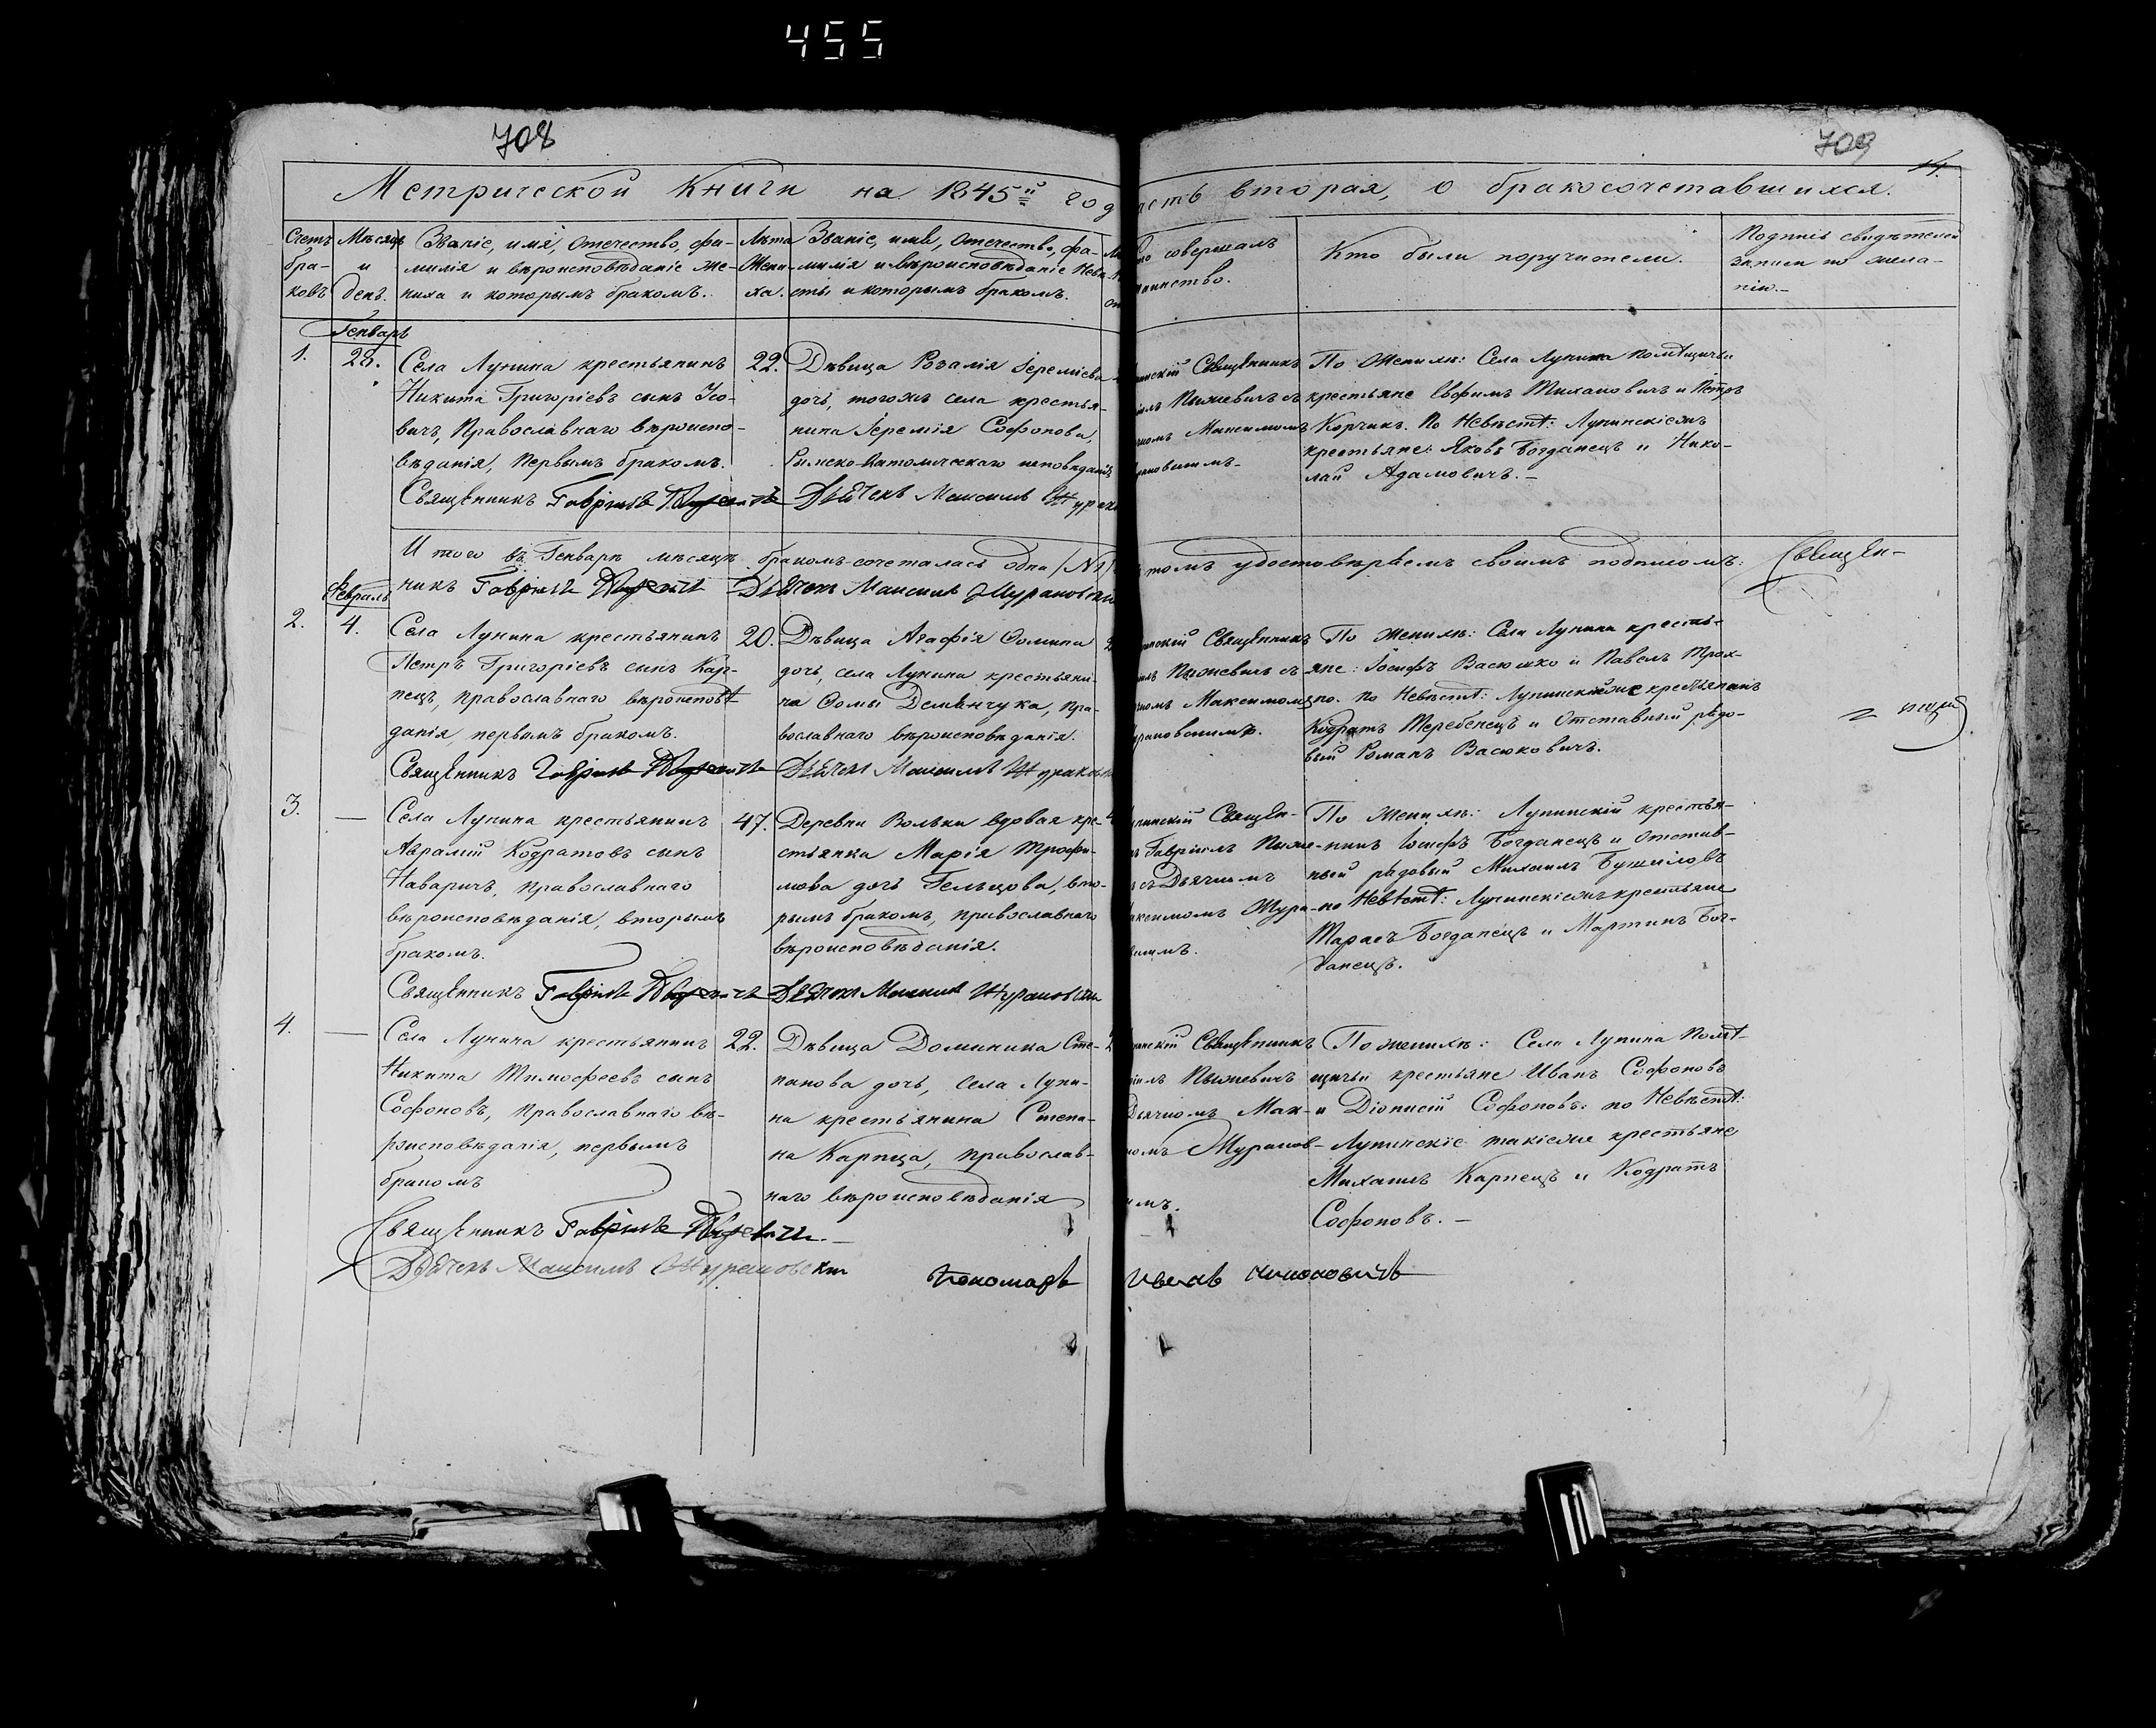 455
708
709
14.
Метрической Книги на 1845й год
асть вторая, о бракосочетавшихся.
Счетъ бра- ковъ
Мѣсяцъ и день.
Званіе, имя, отечество, фа-
милія и вѣроисповѣданіе же-
ниха и которымъ бракомъ.
Лѣта Жени- ха.
Званіе, имя, отечество, фа-
милія и вѣроисповѣданіе Невѣ-
сты и которымъ бракомъ.
то совершалъ
таинство.
Кто были поручители.
Подпись свидѣтелей
записи по жела-
нію.
Генварь
1.
28.
Села Лунина крестьянинъ
Никита Григоріевъ сынъ
вичъ, Православнаго вѣроиспо-
вѣданія, первымъ бракомъ.
22.
Дѣвица Розалія Іереміева
дочь, тогожъ села крестья-
нина Іеремія Софонова,
Римско-Католическаго исповѣданія
инскій Священникъ
Пыжевичъ съ
Максимомъ
По Женихѣ: Села Лунина помѣщичьи
крестьяне Ефимъ Тихановичъ и Петръ
Корчикъ. По Невѣстѣ: Лунинскіежъ
крестьяне: Яковъ Богданецъ и Нико-
лай Адамовичъ.
Священникъ Гавріилъ Пыжевичъ Дьячекъ Максимъ
Итого въ Генварѣ мѣсяцѣ бракомъ сочеталась одна /№1/
томъ удостовѣряемъ своимъ подписомъ: Священ-
никъ Гавріилъ Пыжевичъ Дьячекъ Максимъ Жураковскій
Февраль
2.
4.
Села Лунина крестьянинъ
Петръ Григоріевъ сынъ Кар-
пецъ, православнаго вѣроисповѣ-
данія, первымъ бракомъ.
20.
Дѣвица Агафія Фомина
дочь, села Лунина крестьяни-
на Фомы Деменчука, пра-
вославнаго вѣроисповѣданія.
инскій Священникъ
Пыжевичъ съ
Максимомъ
По Женихѣ: Села Лунина кресть-
яне: Іосифъ Васюшко и Павелъ Трах-
но. По Невѣстѣ: Лунинскійже крестьянинъ
Кодратъ Теребенецъ и Отставный рядо-
вый Романъ Васюковичъ.
Священникъ Гавріилъ Пыжевичъ Дьячекъ Максимъ
3.
—
Села Лунина крестьянинъ
Аврамій Кодратовъ сынъ
Наваричъ, православнаго
вѣроисповѣданія, вторымъ
бракомъ.
47.
Деревни Вольки вдовая кре-
стьянка Марія Трофи-
мова дочь Гельцова, вто-
рымъ бракомъ, православнаго
вѣроисповѣданія.
нинскій Священ-
Гавріилъ Пыже-
съ Дьячкомъ
аксимомъ Жура-
По Женихѣ: Лунинскій крестья-
нинъ Іосифъ Богданецъ и отстав-
ный рядовый Михаилъ
по Невѣстѣ: Лунинскіежъ крестьяне
Тарасъ Богданецъ и Мартинъ Бог-
данецъ.
Священникъ Гавріилъ Пыжевичъ Дьячекъ Максимъ Жураковскій
4.
—
Села Лунина крестьянинъ
Никита Тимофеевъ сынъ
Софоновъ, православнаго вѣ-
роисповѣданія, первымъ
бракомъ
22.
Дѣвица Доминика Сте-
панова дочь, села Луни-
на крестьянина Степа-
на Карпца, православ-
наго вѣроисповѣданія
инскій Священникъ
Пыжевичъ
Дьячкомъ Мак-
Жураков-
По женихѣ: Села Лунина Помѣ-
щичьи крестьяне Иванъ Софоновъ
и Діонисій Софоновъ: по Невѣстѣ:
Лунинскіе такіеже крестьяне
Михаилъ Карпецъ и Кодратъ
Софоновъ.
Священникъ Гавріилъ Пыжевичъ.
Дьячекъ Максимъ Жураковскій
Пономарь Иванъ